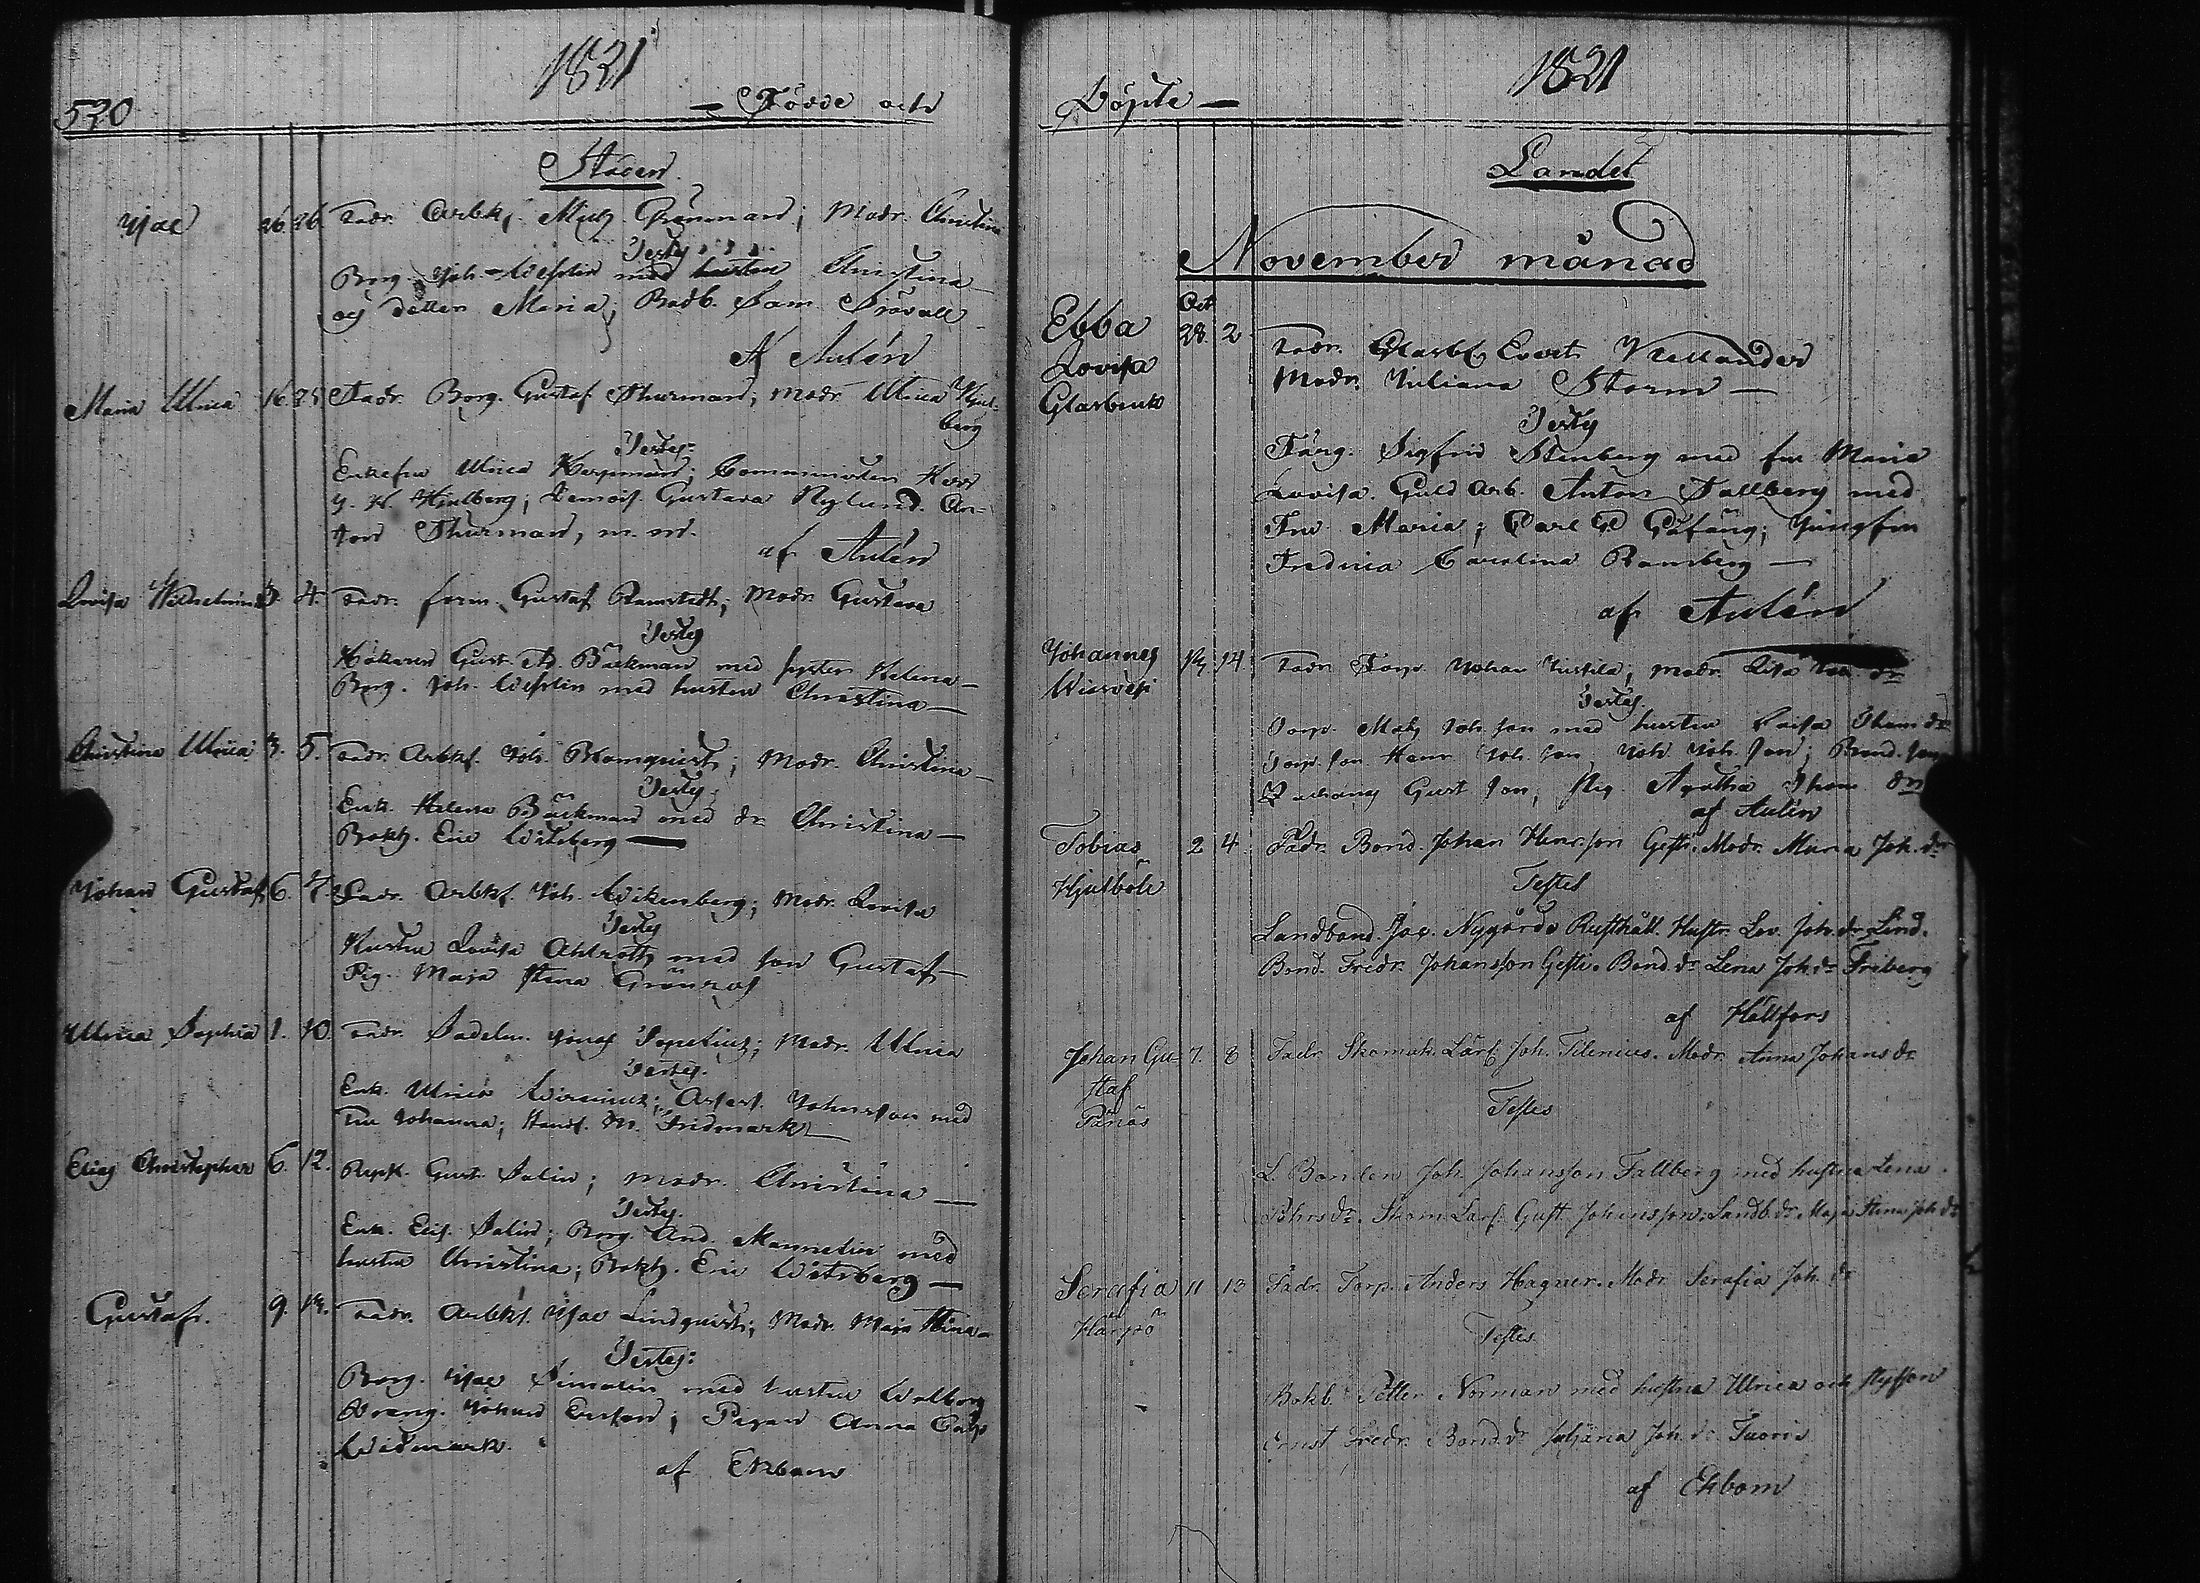 1821
530
— Födde och
Staden
Isac 26. 26. Fadr. Arbk. Mich. Grönman; Modr. Christina
Testes
Borg. Joh. Westlin med hustru Christina
och dotter Maria; Bodb. Sam.
Af Aulén
Maria Ulrica 16. 25 Fadr. Borg. Gustaf Thurman; Modr. Ulrica Hjul-
berg
Testes:
Enkefru Ulrica; Comministern Herr
Hjulberg; Demois. Gustava Nylund. An-
ton Thurman, m. m.
af Aulén
Lovisa Wilhelmina 3. 4. Fadr. Gustaf Ramstedt; Modr. Gustava
Testes
Hökaren Gust. Ad. Bäckman med syster Helena —
Borg. Joh. Westlin med hustru Christina —
Christina Ulrica 3. 5. Fadr. Arbkf. Joh. Blomquist; Modr. Christina —
Testes
Enk. Helena Bäckman med dr Christina —
Bokh. Eric Witsberg —
Johan Gustaf 6. 7. Fadr. Arbkf. Joh. Wikenberg; Modr. Lovisa
Testes
Hustru Lovisa Ahlroth med son Gustaf —
Pig. Maja Stina Grönroos
Ulrica Sophia 1. 10. Fadr. Sadelm. Jonas; Modr. Ulrica
Testes.
Enk. Ulrica; Johnsson med
Fru Johanna; Handl. M. Fridmark —
Elias Christopher 6. 12. Repsl. Gust. Salin; Modr. Christina —
Testes.
Enk. Elis. Salin; Borg. And. Mannelin med
hustru Christina; Bokh. Eric Witsberg —
Gustaf. 9. 14. Fadr. Arbkf. Isac Lindquist; Modr. Maja Stina —
Testes:
Borg. Isac Simolin med hustru Walborg
Dräng. Johan Ericsson; Pigan Anna Caisa
Widmark.
af Ekbom
1821
Döpte —
Landet
November månad
Oct
Ebba 28. 2 Fadr. Glasbl. Evert Wellander
Lovisa Modr. Juliana Storm —
Glasbruk
Testes
Färg. Sigfrid Stenberg med fru Maria
Lovisa. Guld Arb. Anton Fallberg med
Fru Maria; Carl Gd; Jungfru
Fredrica Carolina Ramberg —
af Aulén
Johannes 14. 14 Fadr. Torp. Johan; Modr. Lisa
Testes.
Torp. Mats Joh. son med hustru Caisa Thom. dr
Torp. son Henr. Joh. son, Joh. Joh. son; Bond. son
Zacharias Gust. son, Pig. Agatha Thom. dr
af Aulén
Tobias 2 4 Fadr. Bond. Johan Henr.son; Modr. Maria Joh. dr
Hjulböle
Testes
Landbond. Jac. Nygårds Rusthåll. Hustr. Lov. Joh. dr Lind.
Bond. Fredr. Johansson. Bond. dr Lena Joh. dr Friberg
af Hällfors
Johan Gu- 7. 8 Fadr. Skomak. Lärl. Joh. Silenius. Modr. Anna Johans dr
staf
Pänäs
Testes
L. Bonden Joh. Johansson Fallberg med hustru Lena
Skom. Lärl. Gust. Johansson. Landb. dr Maja Stina Joh. dr
Serafia 11 13 Fadr. Torp. Anders Hagner. Modr. Serafia Joh. dr
Härpö
Testes
Bokb. Petter Norman med hustru Ulrica och styfson
Ernst Fredr. Bond. dr Juliana Joh. dr
af Ekbom